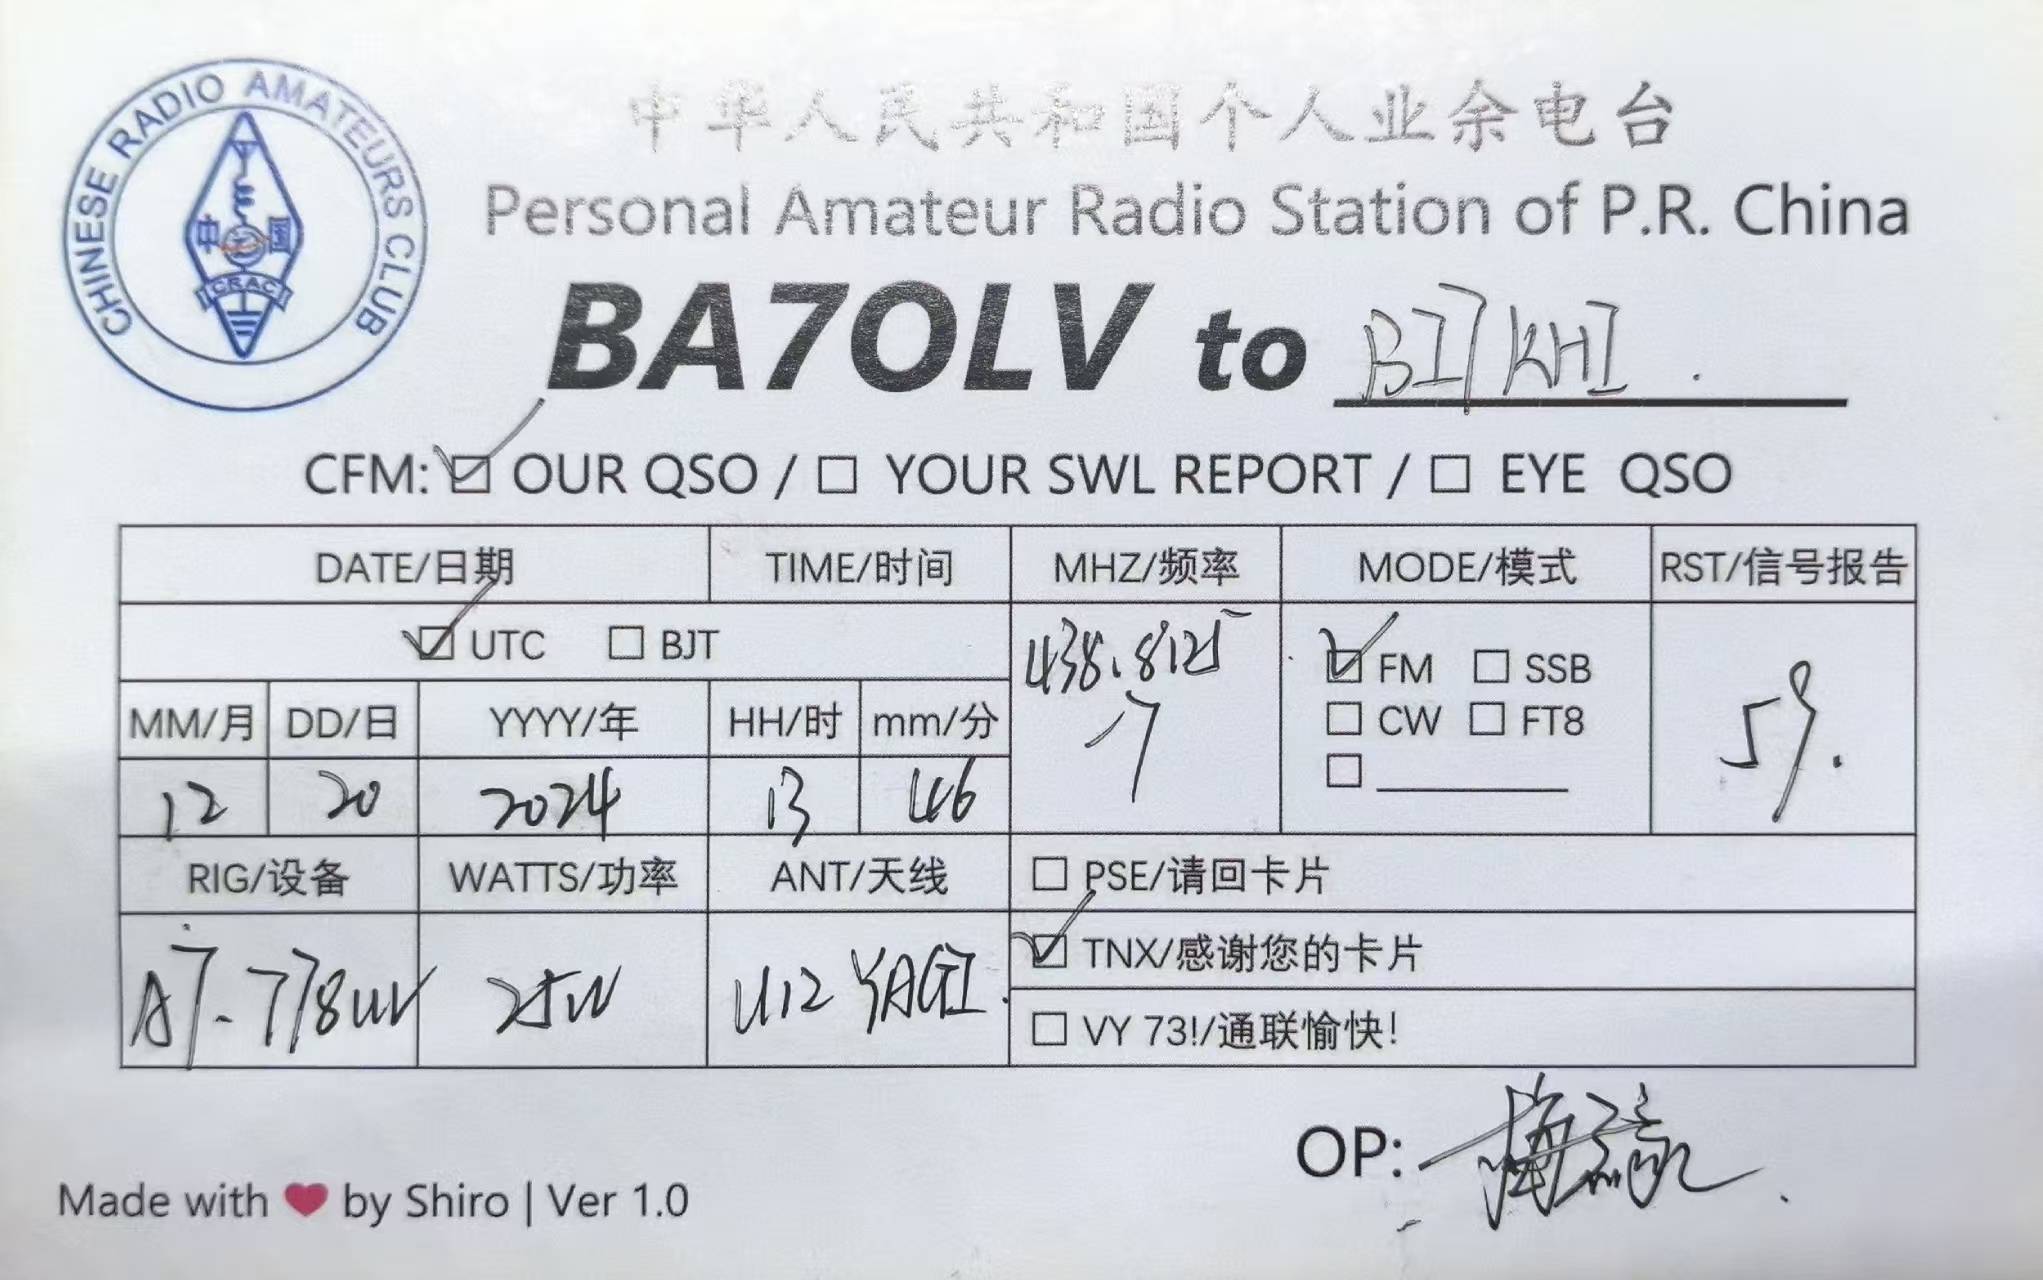 CHINESE RADIO AMATEURS CLUB
中国
CRAC
中华人民共和国个人业余电台
Personal Amateur Radio Station of P.R. China
BA7OLV to BI7KHI
CFM: ☑ OUR QSO / ☐ YOUR SWL REPORT / ☐ EYE QSO
DATE/日期 TIME/时间 MHZ/频率 MODE/模式 RST/信号报告
☑ UTC ☐ BJT
438.8125
-7
☑ FM ☐ SSB
☐ CW ☐ FT8
☐
59.
MM/月 DD/日 YYYY/年 HH/时 mm/分
12 20 2024 13 46
RIG/设备 WATTS/功率 ANT/天线
☐ PSE/请回卡片
A7-778UV 25W U12 YAGI.
☑ TNX/感谢您的卡片
☐ VY 73!/通联愉快!
OP:
Made with ❤ by Shiro | Ver 1.0